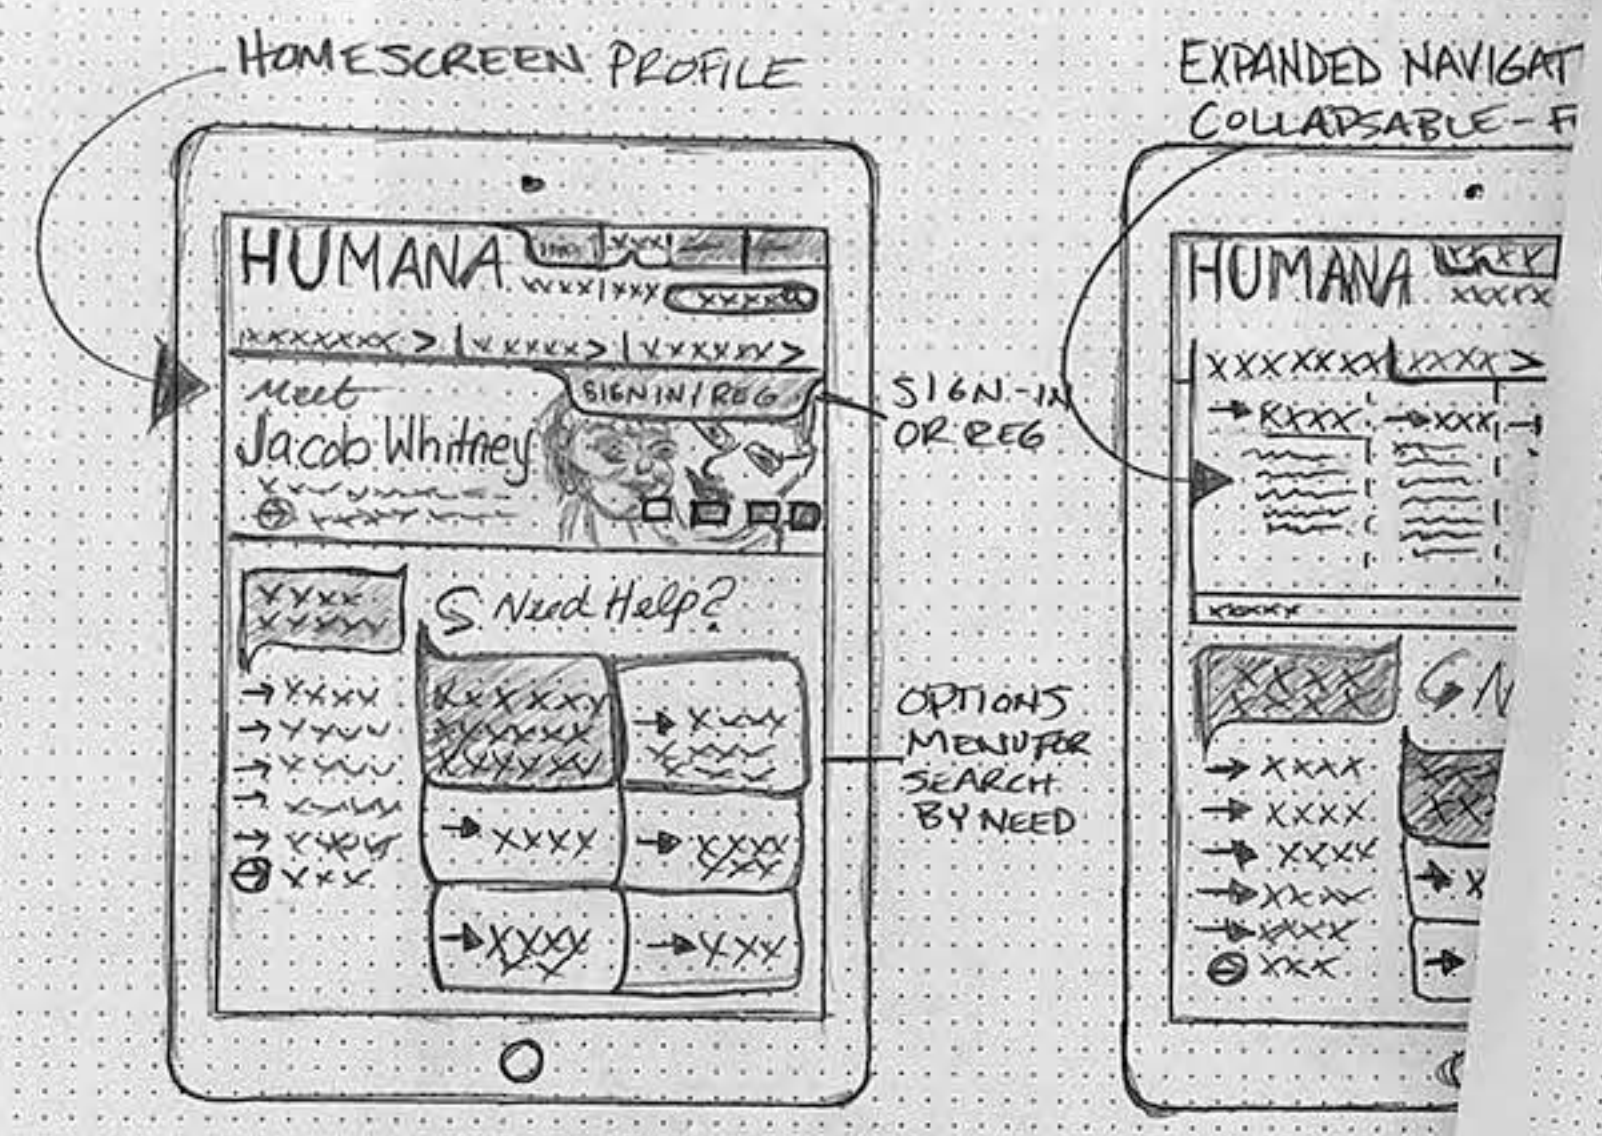 HOMESCREEN PROFILE
HUMANA
XXXX
XXXX|XXX
XXXXX
XXXXXXX > | XXXXX > | XXXXXX >
Meet
SIGN IN / REG
Jacob Whitney
SIGN-IN
OR REG
XXXX
XXXXX
Need Help?
→ XXXX
→ XXXX
→ XXXX
→ XXXX
→ XXXX
XXX
XXXXXX
XXXXXX
XXXXXX
→ XXXX
XXXX
XXX
→ XXXX
→ XXXX
XXX
→ XXXX
XX
→ XXX
OPTIONS
MENU FOR
SEARCH
BY NEED
EXPANDED NAVIGAT
COLLAPSABLE - F
HUMANA
XXXX
XXXXX
XXXXXXX XXXX >
→ XXXX → XXX
XXXXX
XXXX
XXXX
N
→ XXXX
→ XXXX
→ XXXX
→ XXXX
→ XXXX
XXX
→ X